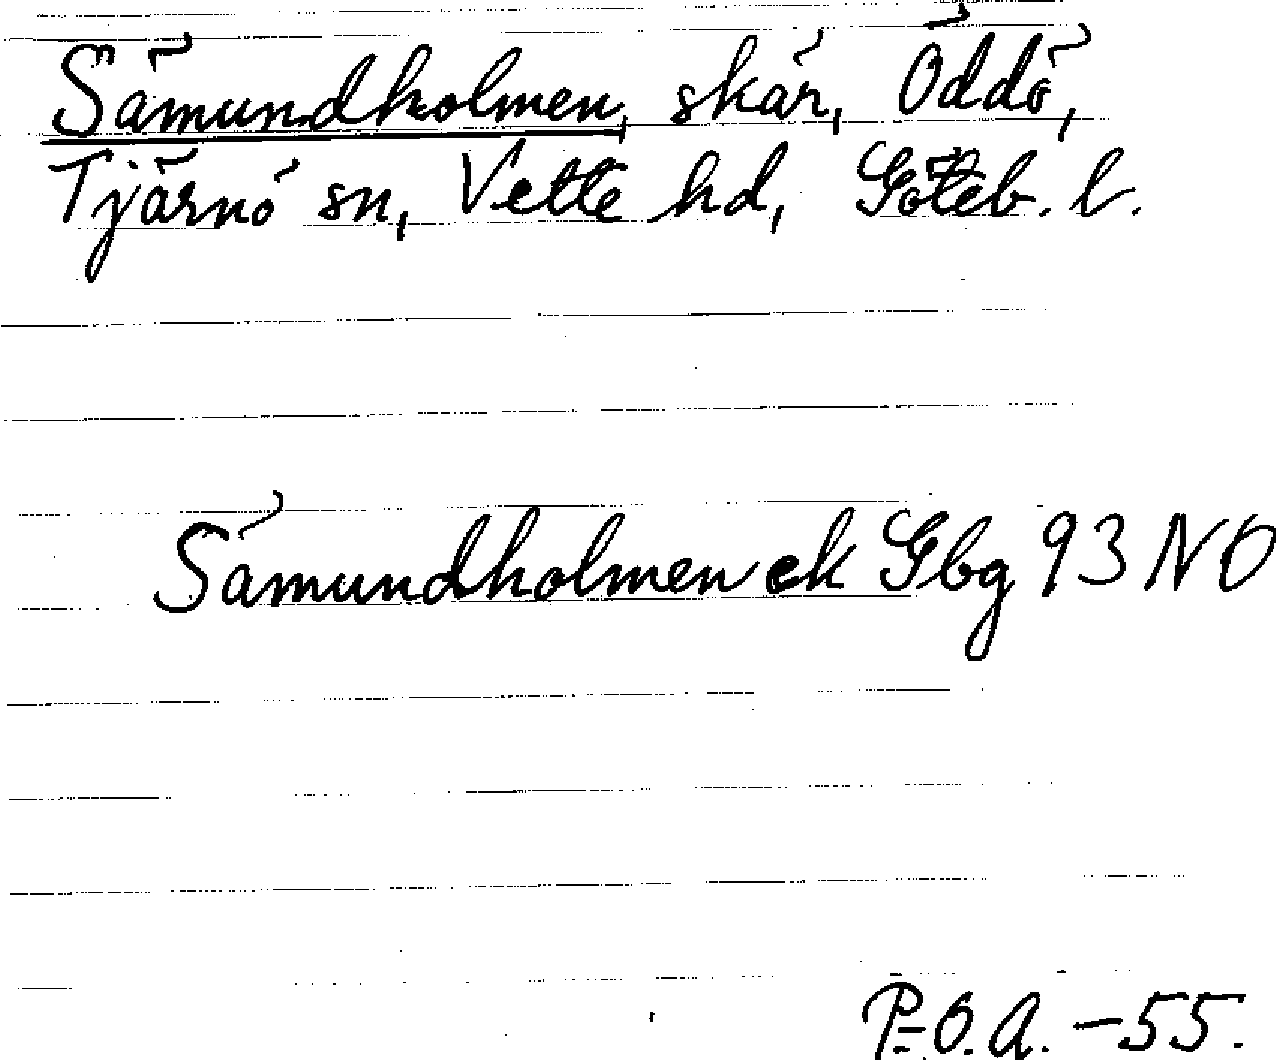 Sämundholmen, skär, Öddö,
Tjärnö sn, Vette hd, Göteb. l.
Sämundholmen ek Gbg 93 NO
P-O.A. -55.